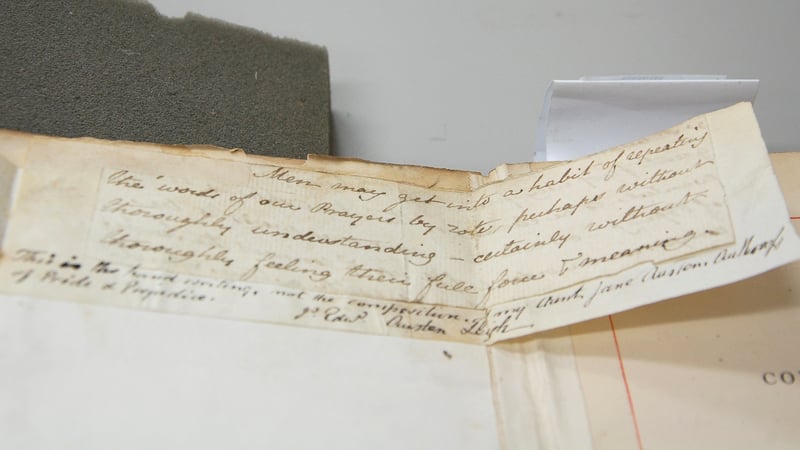 Men may get into a habit of repeating
the words of our Prayers by rote, perhaps without
thoroughly understanding – certainly without
thoroughly feeling their full force & meaning.
This is the hand writing, not the composition, of my Aunt, Jane Austen, Authoress
of Pride & Prejudice.
Js Edwd Austen Leigh
CO